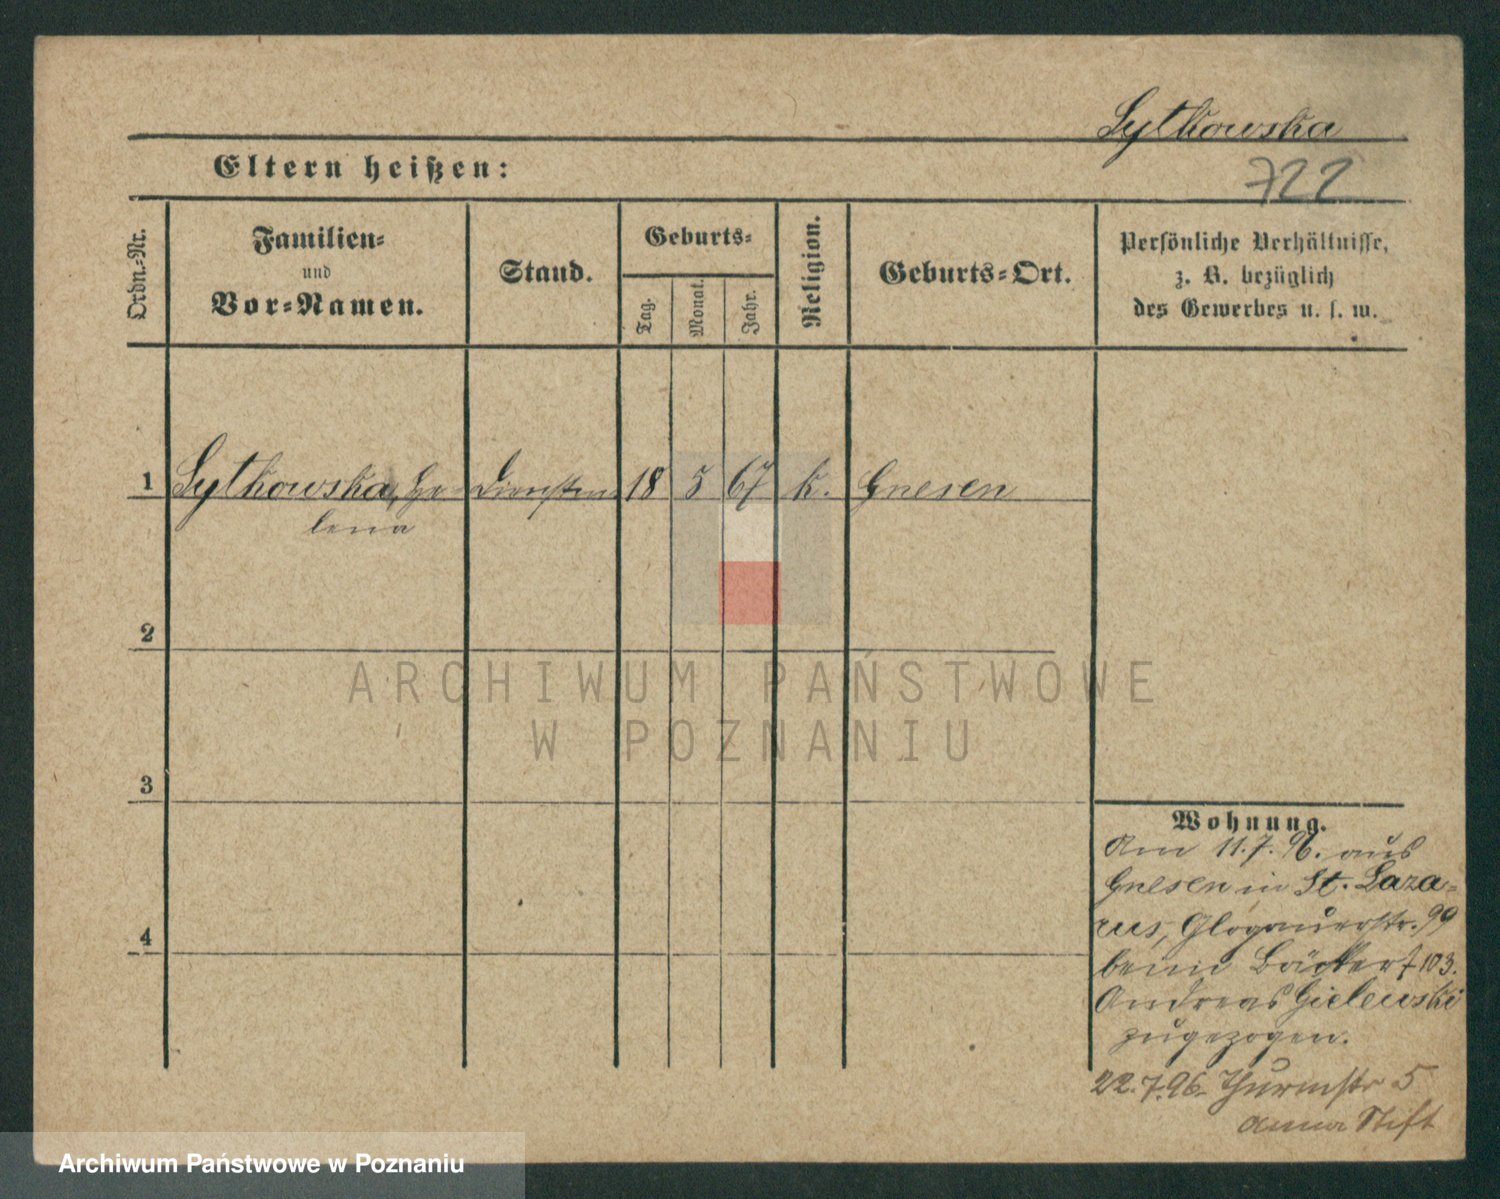 Sytkowska
722
Eltern heißen:
Ordn.-Nr.
Familien-
und
Vor-Namen.
Stand.
Geburts-
Tag.
Monat.
Jahr.
Religion.
Geburts-Ort.
Persönliche Verhältnisse,
z. B. bezüglich
des Gewerbes u. s. w.
1 Sytkowska, He- 18 5 67 k. Gnesen
lena
2
3
4
Wohnung.
Am 11.7.96. aus
Gnesen in St. Laza-
rus, Glogauerstr. 99
beim Bäcker f 103.
Andreas Gielewski
zugezogen.
22.7.96. Thurmstr 5
Anna Stift
ARCHIWUM PAŃSTWOWE
W POZNANIU
Archiwum Państwowe w Poznaniu